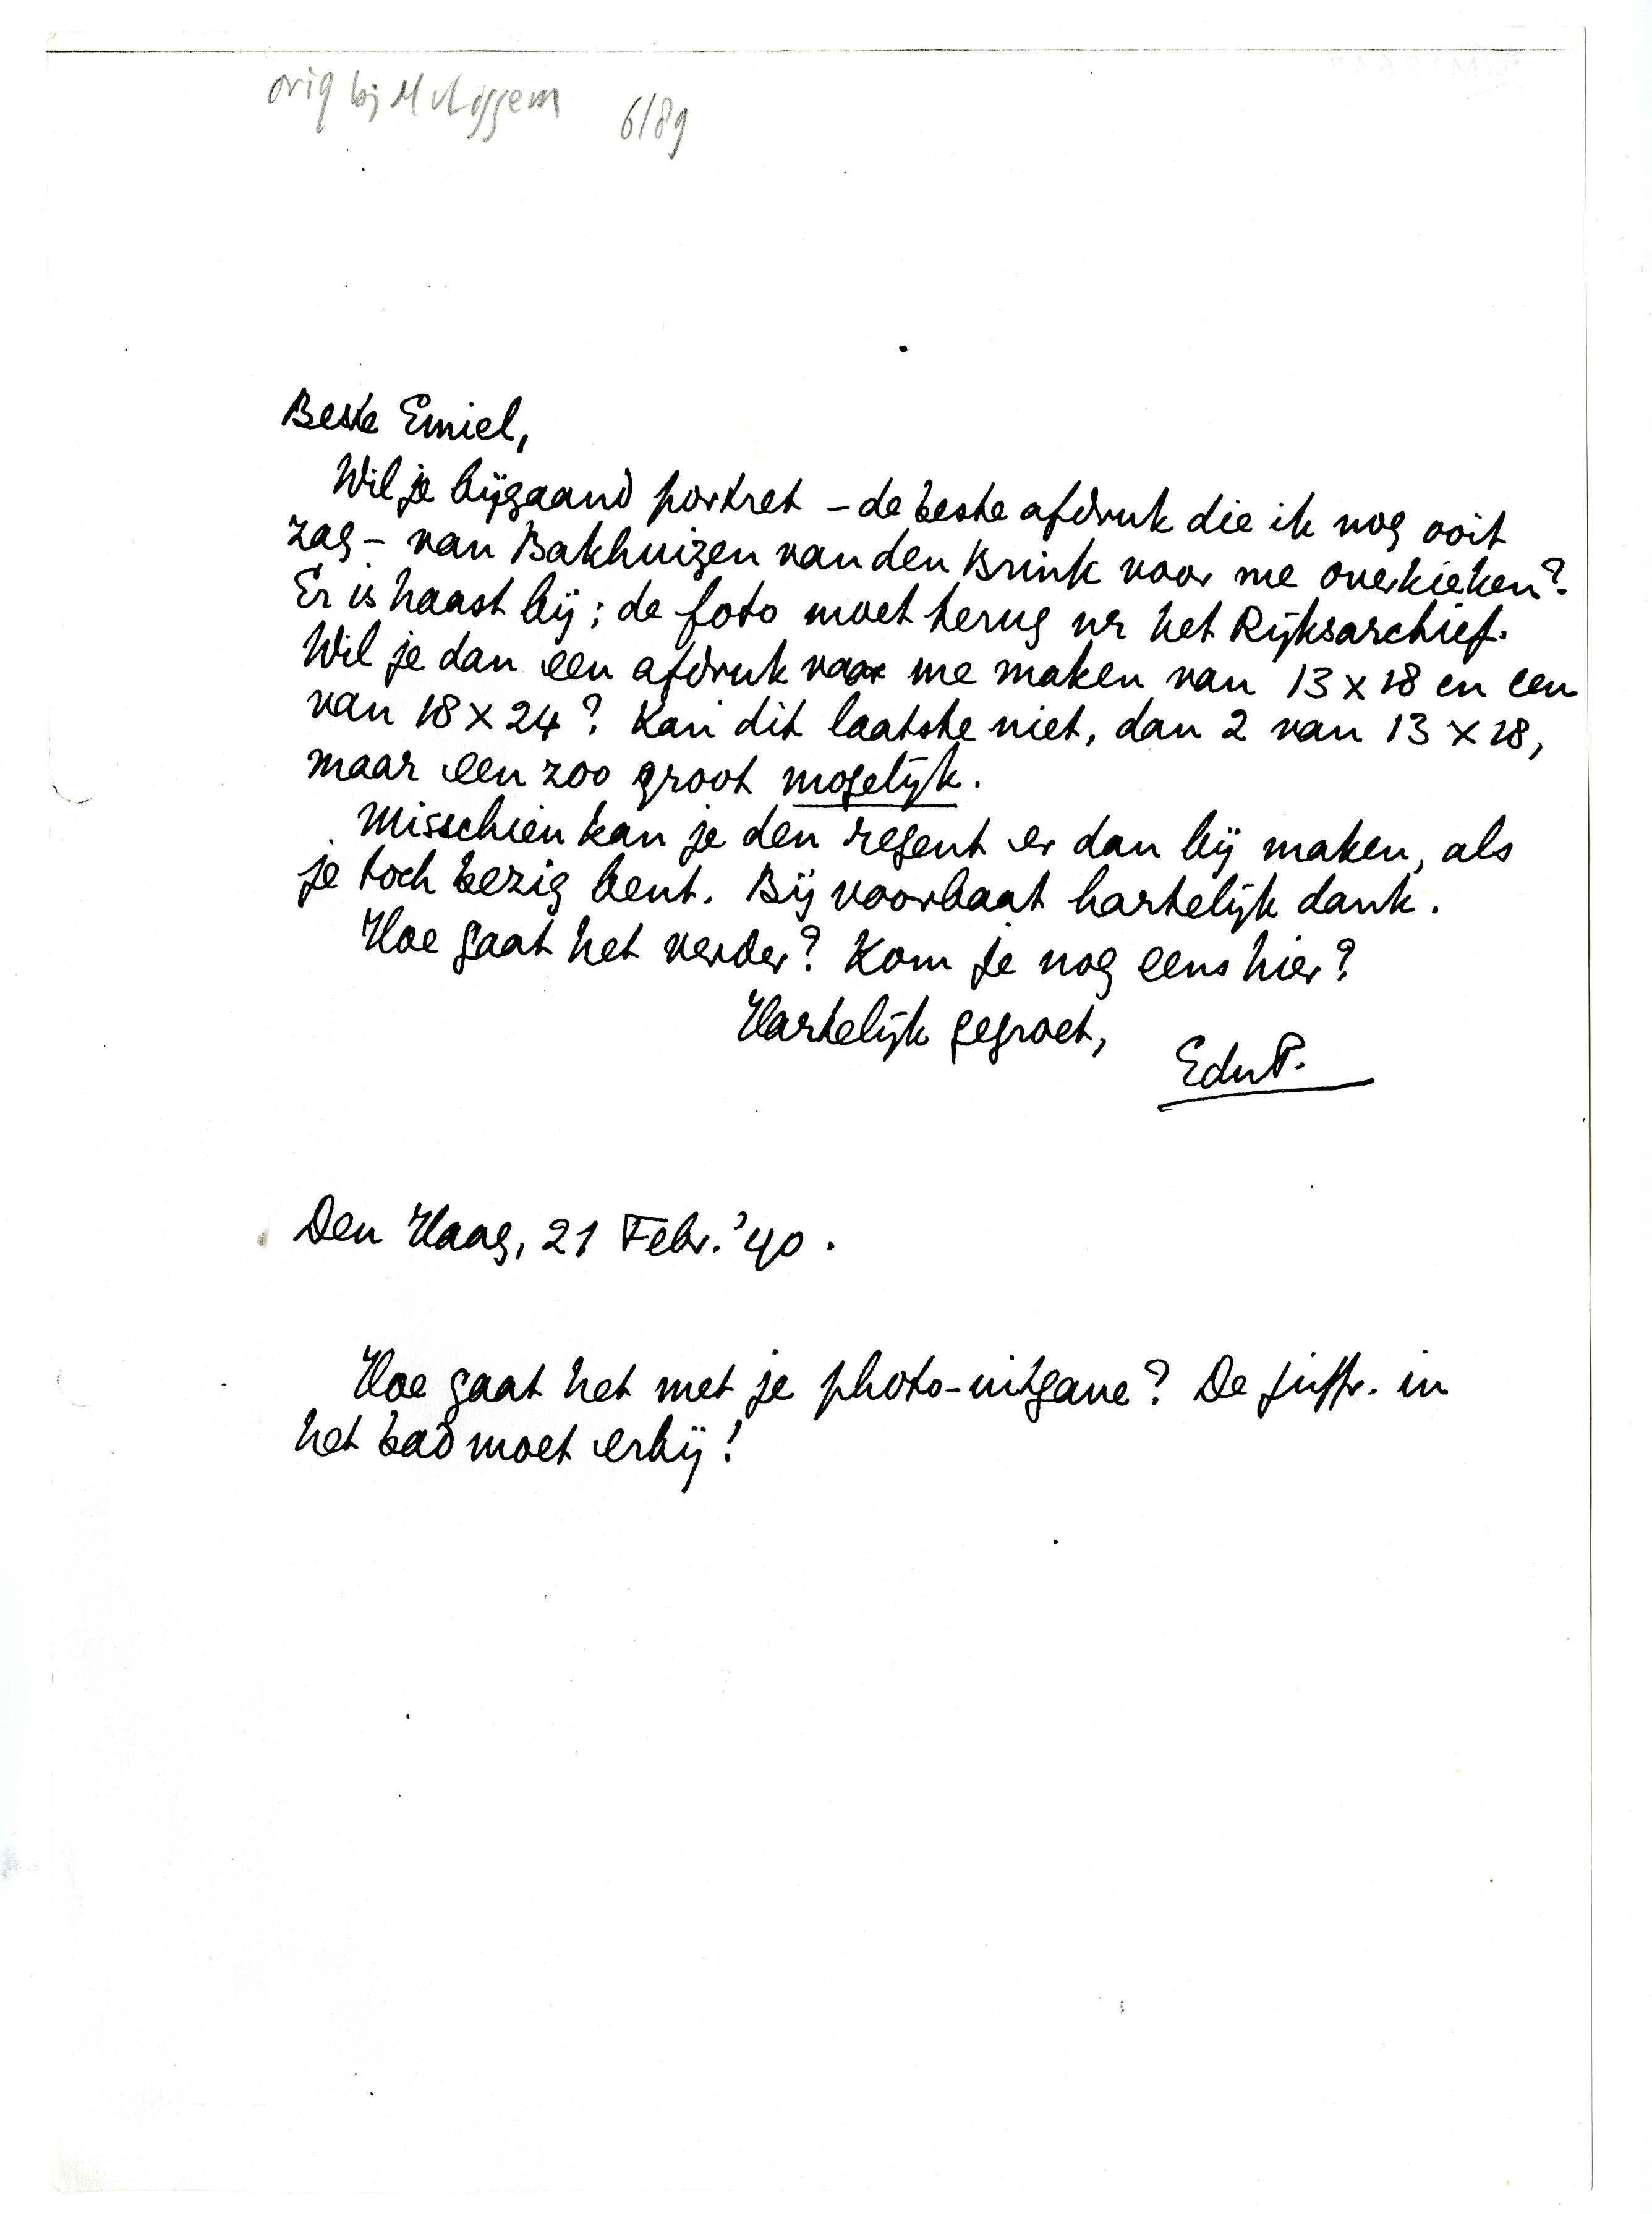 orig bij M v Loggem 6/89
Beste Emiel,
Wil je bijgaand portret – de beste afdruk die ik nog ooit
zag – van Bakhuizen van den Brink voor me overkieken?
Er is haast bij; de foto moet terug nr het Rijksarchief.
Wil je dan een afdruk voor me maken van 13 x 18 en een
van 18 x 24? Kan dit laatste niet, dan 2 van 13 x 18,
maar een zoo groot mogelijk.
Misschien kan je den regent er dan bij maken, als
je toch bezig bent. Bij voorbaat hartelijk dank.
Hoe gaat het verder? Kom je nog eens hier?
Hartelijk gegroet,
EduP.
Den Haag, 21 Febr. '40.
Hoe gaat het met je photo-uitgave? De juffr. in
het bad moet erbij!